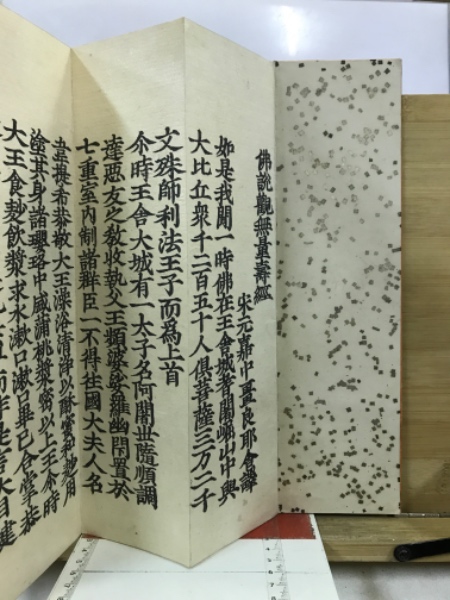 佛說觀無量壽經
宋元嘉中畺良耶舍譯
如是我聞一時佛在王舍城耆闍崛山中與
大比丘衆千二百五十人俱菩薩三万二千
文殊師利法王子而為上首
尒時王舍大城有一太子名阿闍世隨順調
達惡友之教收執父王頻婆娑羅幽閇置於
七重室內制諸群臣一不得往國大夫人名
韋提希恭敬大王澡浴清淨以酥蜜和麨用
塗其身諸瓔珞中盛蒲桃漿密以上王尒時
大王食麨飲漿求水漱口漱口畢已合掌恭
而作是言大目揵